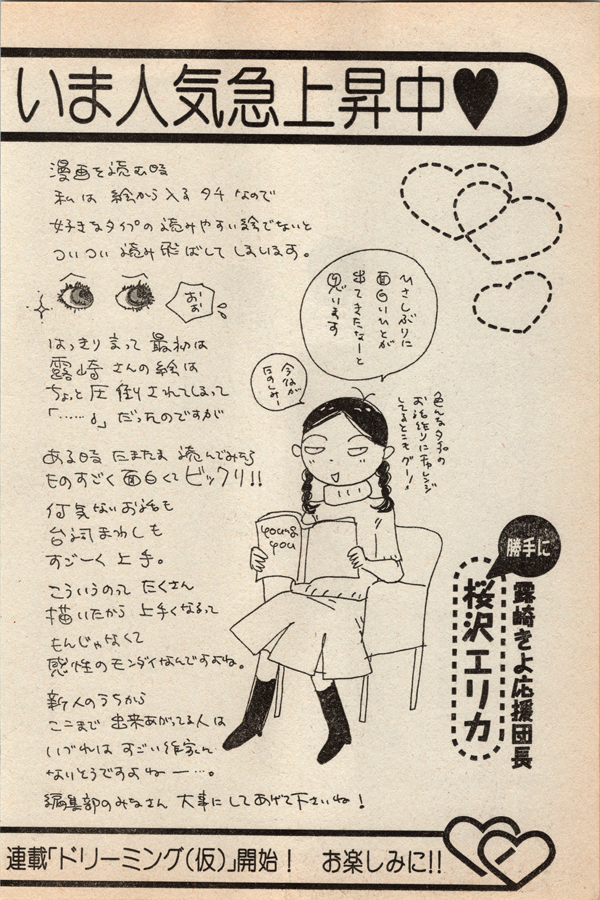 いま人気急上昇中♥
漫画を読む時
私は 絵から入る タチ なので
好きなタイプの 読みやすい絵でないと
ついつい 読み飛ばして しまいます。
おお
はっきり言って 最初は
露崎さんの絵は
ちょっと圧倒されてしまって
「……」だったのですが
ある時 たまたま 読んでみたら
ものすごく面白くてビックリ!!
何気ないお話も
台詞まわしも
すごーく上手。
こういうのって たくさん
描いたから 上手くなるって
もんじゃなくて
感性のモンダイなんですよね。
新人のうちから
ここまで 出来あがってる人は
いずれは すごい作家さん
なりそうですよねー…。
編集部のみなさん 大事にしてあげて下さいね!
ひさしぶりに
面白いひとが
出てきたなーと
思います
今後が
たのしみー
色んなタイプの
お話作りにチャレンジ
してるとこもグー!
young
you
勝手に
露崎きよ応援団長
桜沢エリカ
連載「ドリーミング(仮)」開始! お楽しみに!!